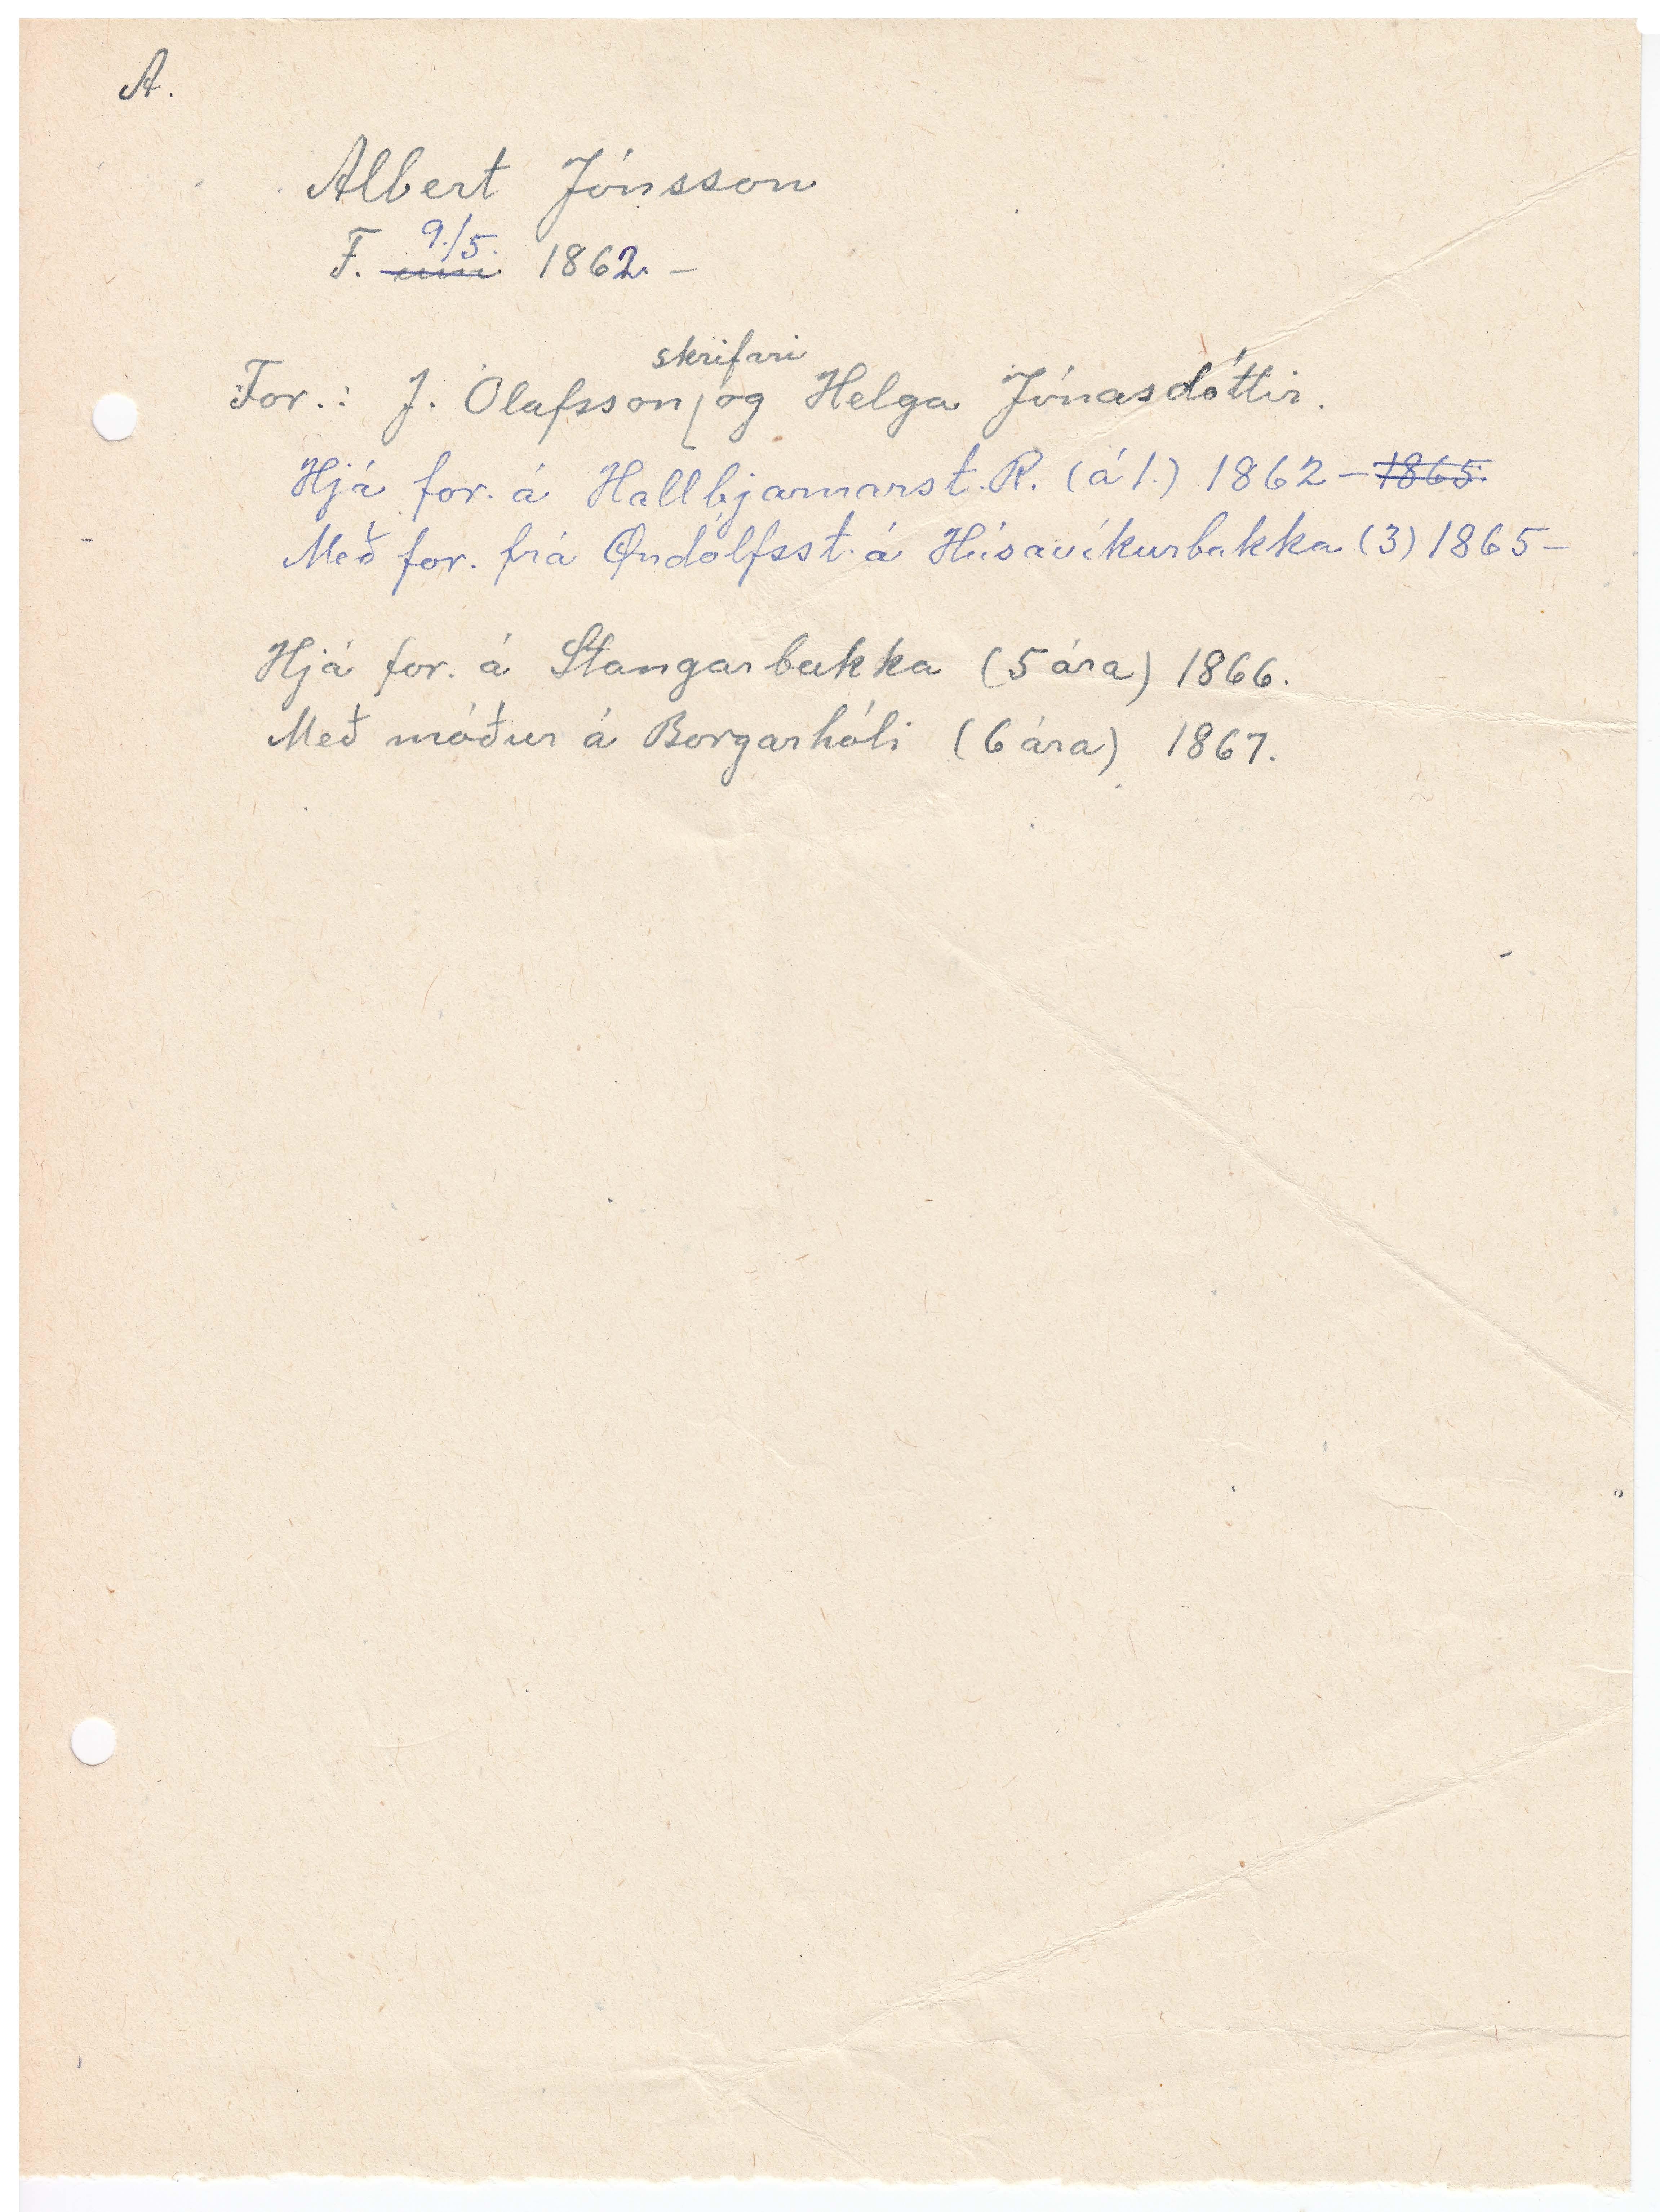 A.
Albert Jónsson
F. 9./5. um 1862. –
For.: J. Ólafsson, skrifari og Helga Jónasdóttir.
Hjá for. á Hallbjarnarst. R. (á 1.) 1862 – 1865.
Með for. frá Öndólfsst. á Húsavíkurbakka (3) 1865 –
Hjá for. á Stangarbakka (5 ára) 1866.
Með móður á Borgarhóli (6 ára) 1867.